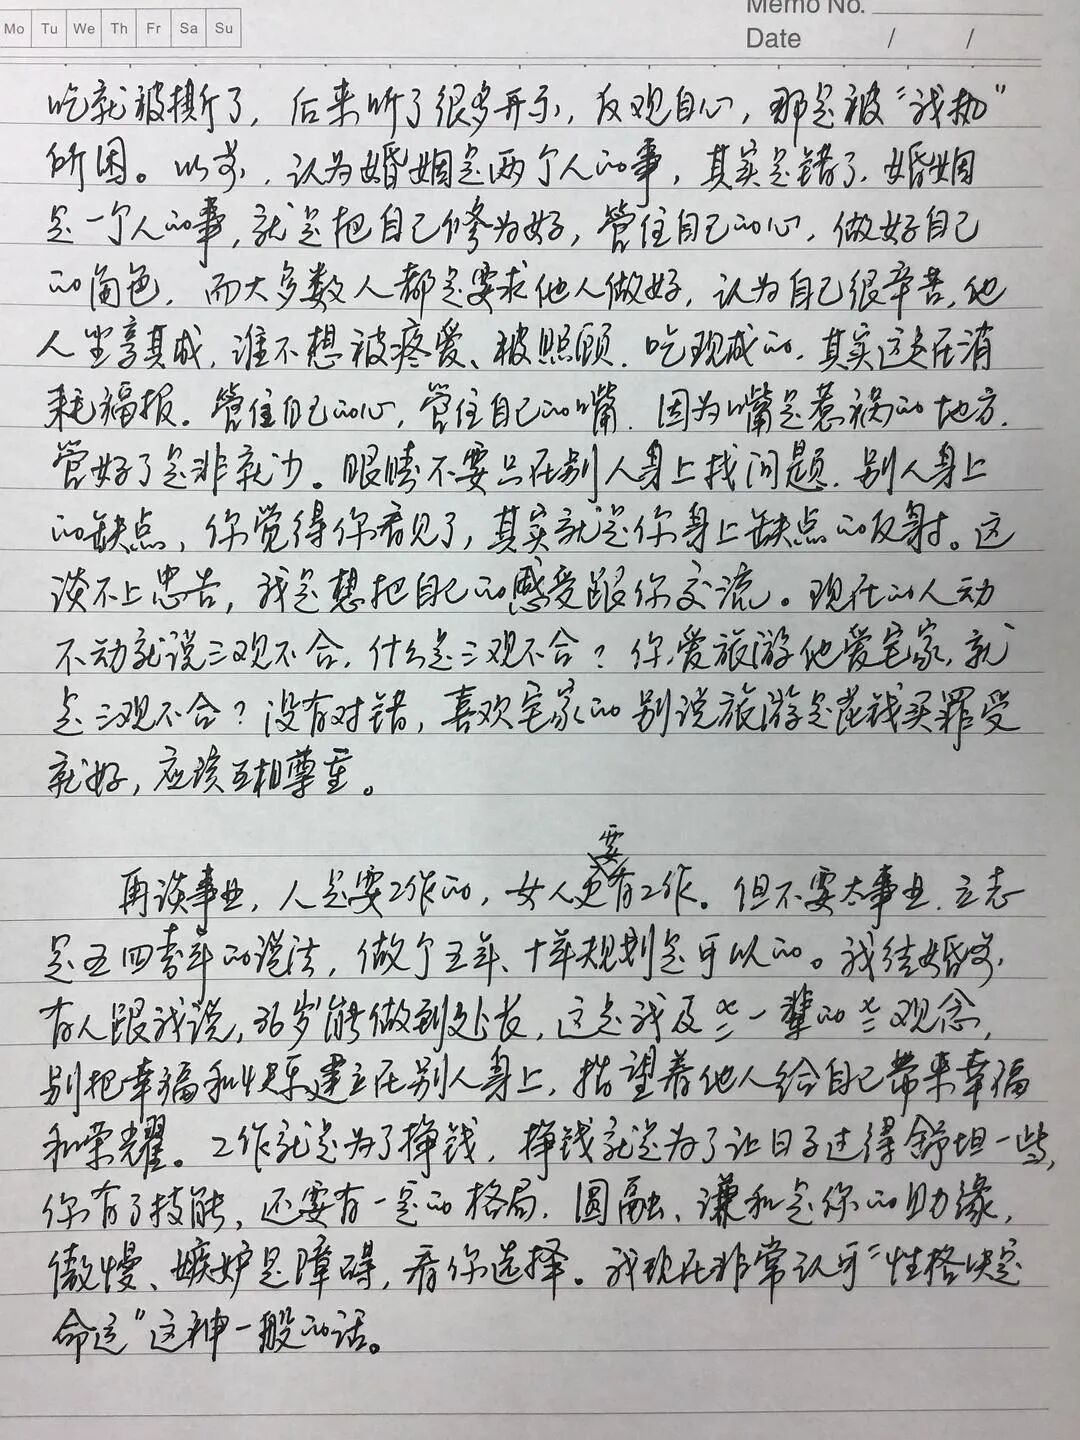 Mo Tu We Th Fr Sa Su
Memo No.
Date / /
吃就被撕了，后来听了很多开示，反观自心，那是被“我执”
所困。以前，认为婚姻是两个人的事，其实是错了，婚姻
是一个人的事，就是把自己修为好，管住自己的心，做好自己
的角色，而大多数人都是要求他人做好，认为自己很辛苦，他
人坐享其成，谁不想被疼爱、被照顾，吃现成的，其实这是在消
耗福报。管住自己的心，管住自己的嘴，因为嘴是惹祸的地方，
管好了是非就少。眼睛不要只在别人身上找问题，别人身上
的缺点，你觉得你看见了，其实就是你身上缺点的反射。这
谈不上忠告，我是想把自己的感受跟你交流。现在的人动
不动就说三观不合，什么是三观不合？你爱旅游他爱宅家，就
是三观不合？没有对错，喜欢宅家的别说旅游是花钱买罪受
就好，应该互相尊重。
要
再谈事业，人是要工作的，女人更有工作。但不要太事业，立志
是五四青年的说法，做个五年、十年规划是可以的。我结婚前，
有人跟我说，36岁能做到处长，这是我及父一辈的观念，
别把幸福和快乐建立在别人身上，指望着他人给自己带来幸福
和荣耀。工作就是为了挣钱，挣钱就是为了让日子过得舒坦一些，
你有了技能，还要有一定的格局，圆融、谦和是你的助缘，
傲慢、嫉妒是障碍，看你选择。我现在非常认可“性格决定
命运”这神一般的话。